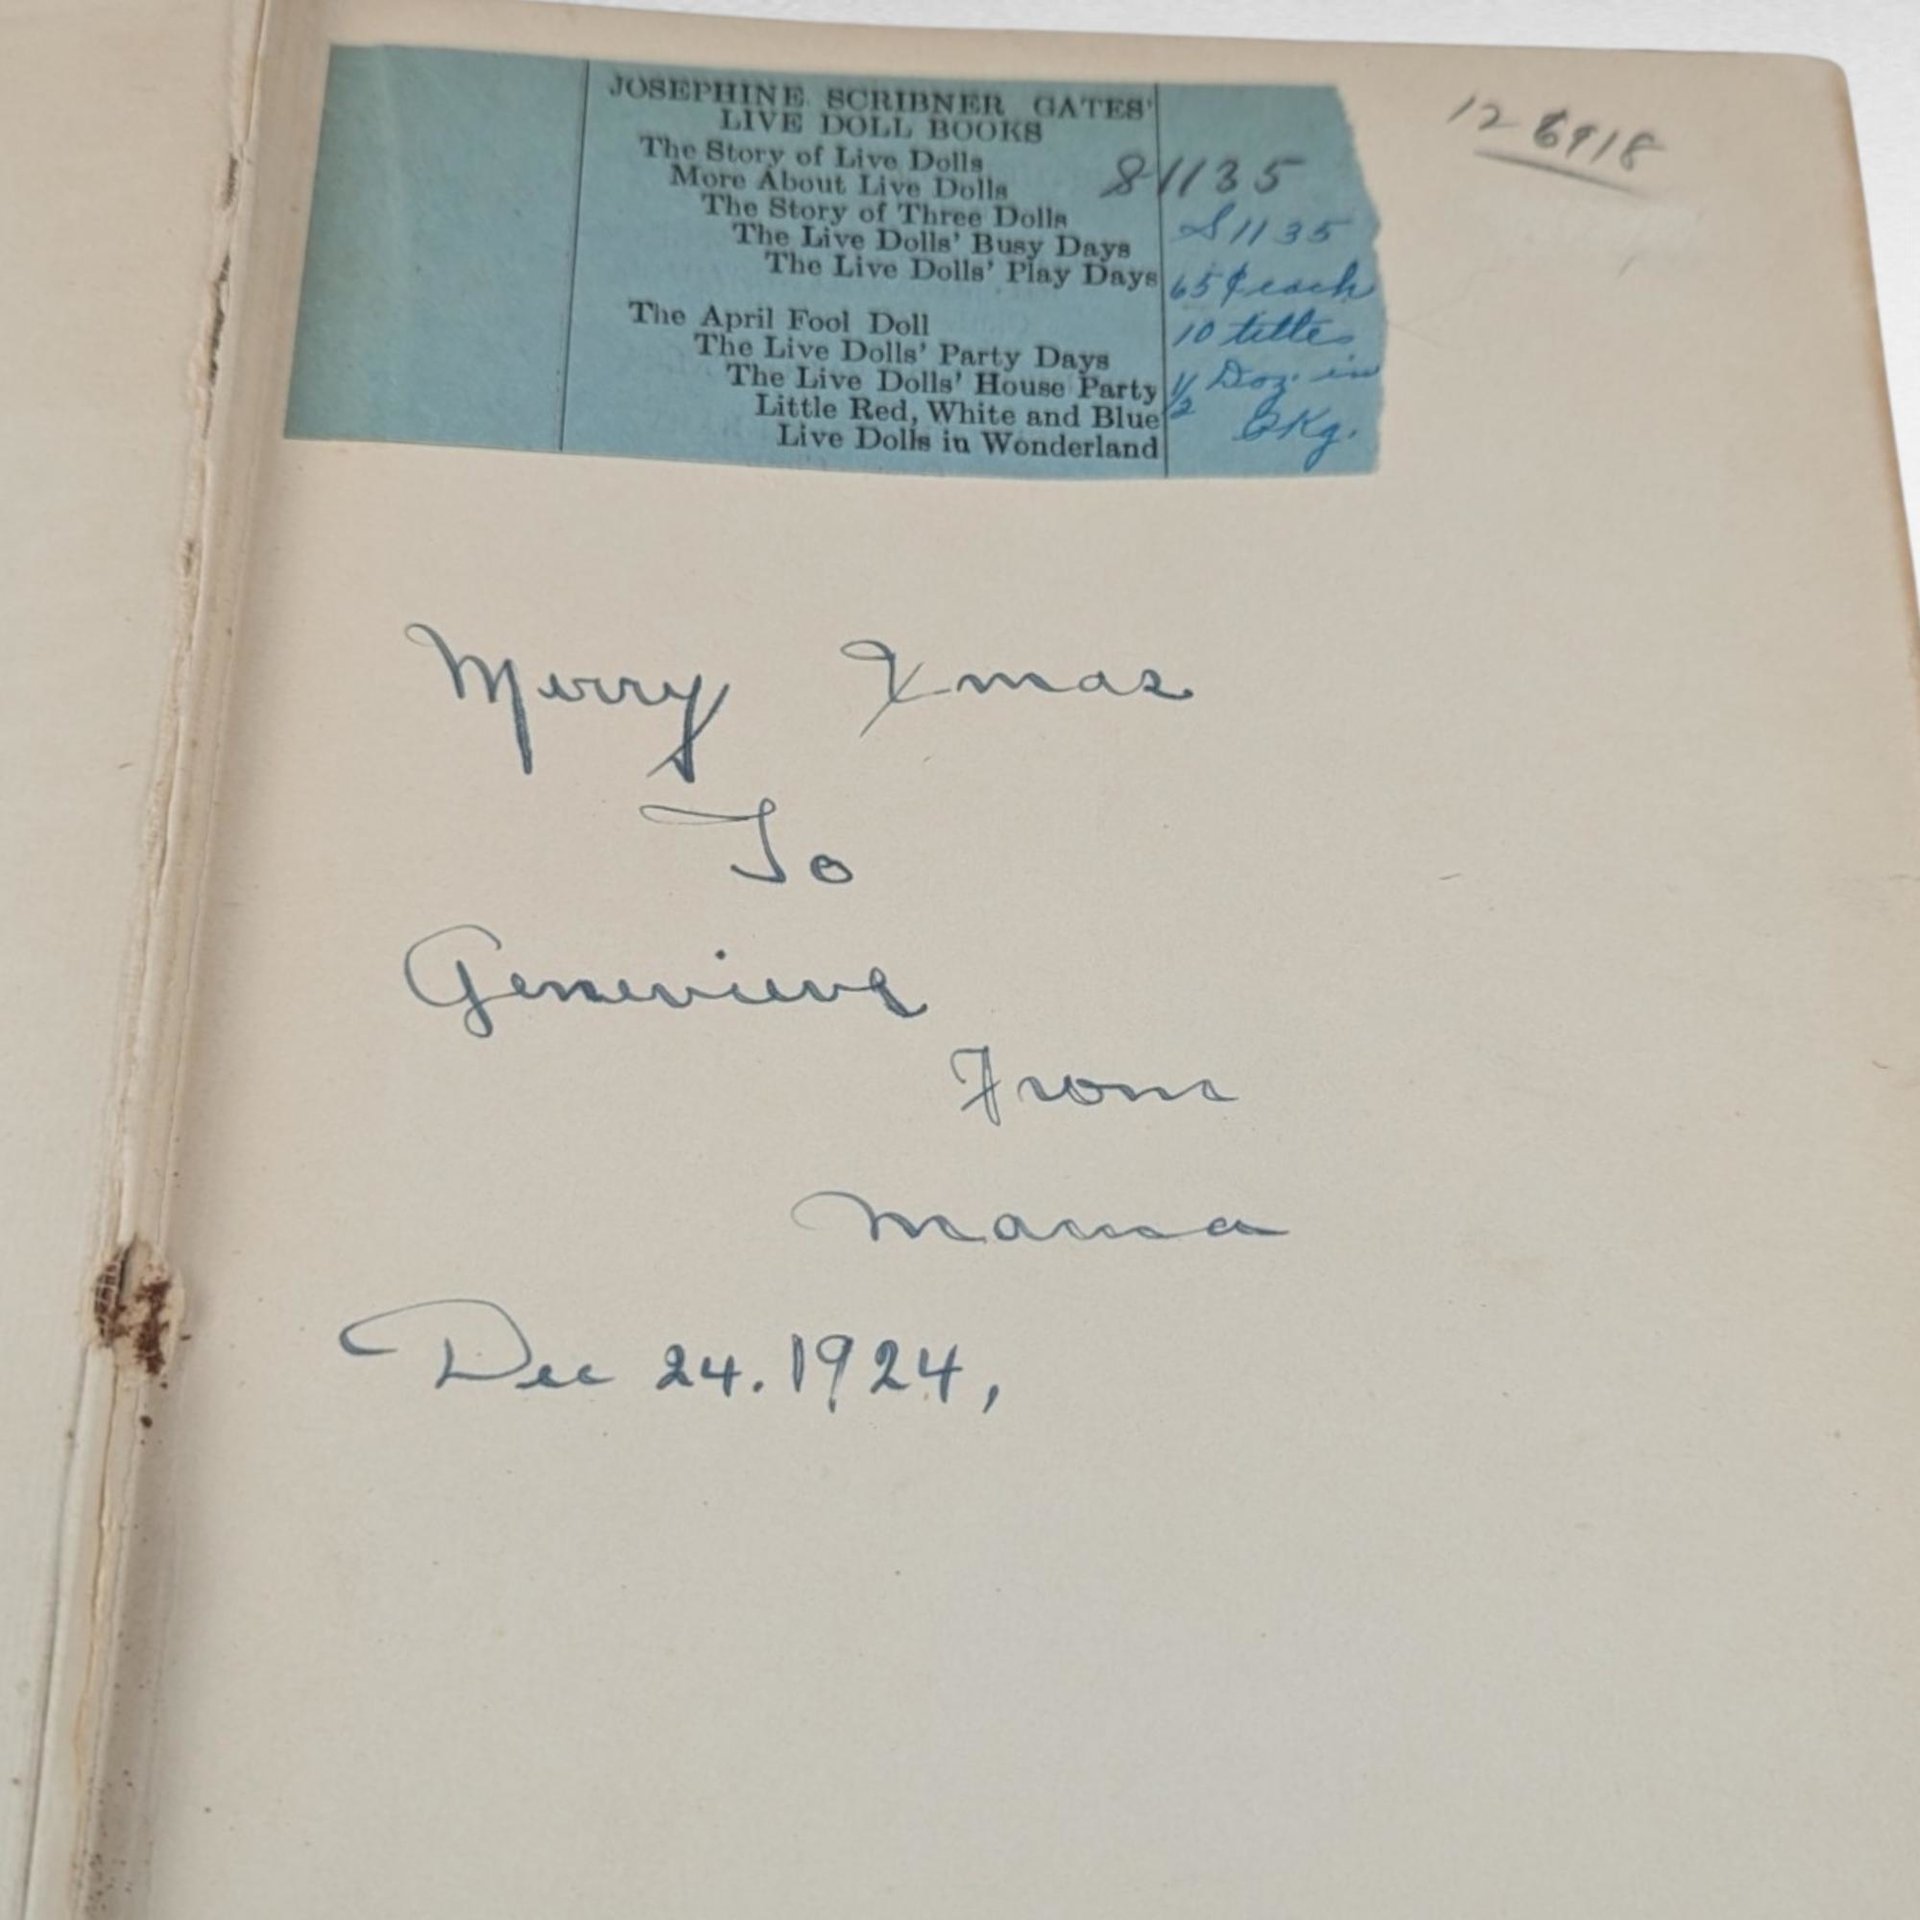 JOSEPHINE SCRIBNER GATES'
LIVE DOLL BOOKS
The Story of Live Dolls
More About Live Dolls
The Story of Three Dolls
The Live Dolls' Busy Days
The Live Dolls' Play Days
The April Fool Doll
The Live Dolls' Party Days
The Live Dolls' House Party
Little Red, White and Blue
Live Dolls in Wonderland
81135
S1135
65¢ each
10 titles
1/2 Doz. in
Pkg.
12 6918
Merry Xmas
To
Genevieve
From
Mama
Dec 24. 1924,